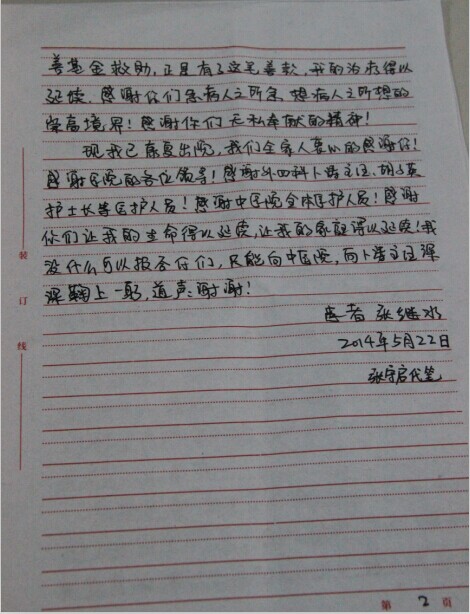 善基金救助,正是有了这笔善款,我的治疗得以
延续。感谢你们急病人之所急,想病人之所想的
崇高境界!感谢你们无私奉献的精神!
现我已康复出院,我们全家人衷心的感谢你!
感谢医院的各位领导!感谢外四科卜蒙主任、胡
护士长等医护人员!感谢中医院全体医护人员!感谢
你们让我的生命得以延续,让我的家庭得以延续!我
没什么可以报答你们,只能向中医院,向卜主任深
深鞠上一躬,道声:谢谢!
患者 张继水
2014年5月22日
张守启代笔
装
订
线
第 2 页